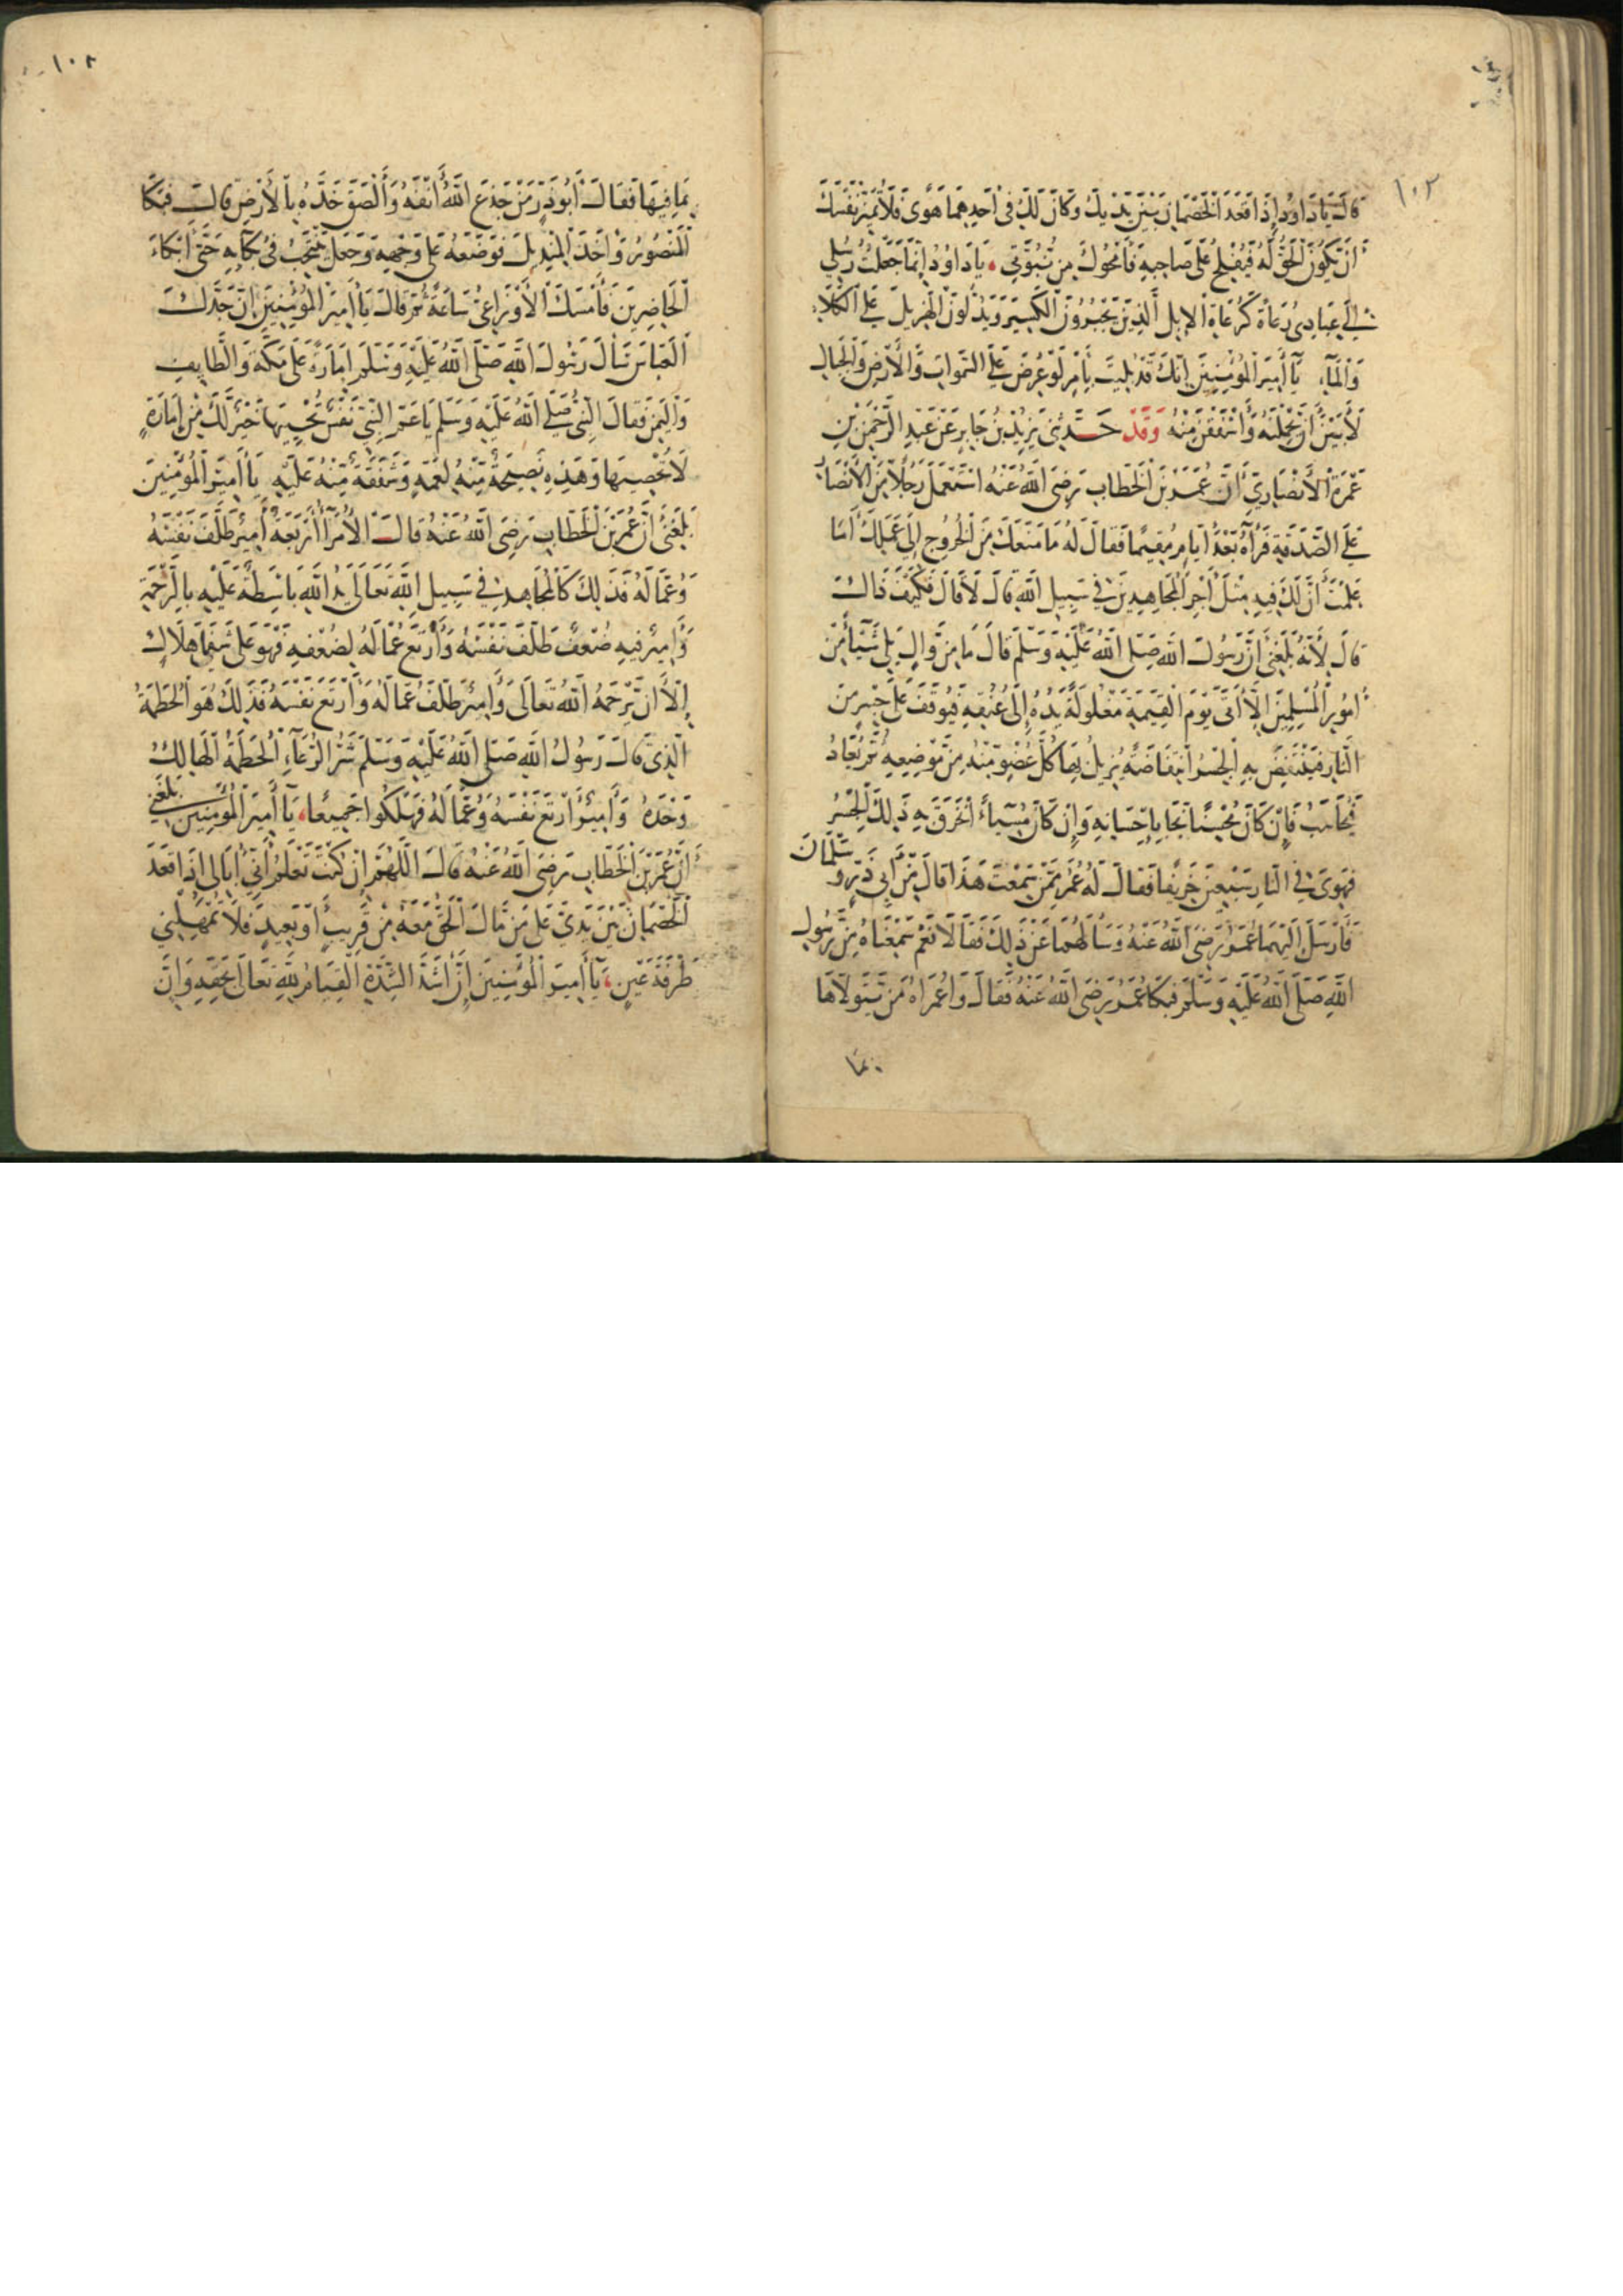 ١٠٢
قَالَ يَا دَاوُدُ إِذَا قَعَدَ الْخَصْمَانِ بَيْنَ يَدَيْكَ وَكَانَ لَكَ فِي أَحَدِهِمَا هَوًى فَلَا تَمَنَّ نَفْسَكَ
أَنْ يَكُونَ الْحَقُّ لَهُ فَيُفْلِحُ عَلَى صَاحِبِهِ فَأَمْحُوكَ مِنْ نُبُوَّتِي، يَا دَاوُدُ إِنَّمَا جَعَلْتُ رُسُلِي
إِلَى عِبَادِي رُعَاةً كَرُعَاةِ الْإِبِلِ الَّذِينَ يَجْبُرُونَ الْكَسِيرَ وَيَدُلُّونَ الْهَزِيلَ عَلَى الْكَلَاءِ
وَالْمَاءِ، يَا أَمِيرَ الْمُؤْمِنِينَ إِنَّكَ قَدْ بُلِيتَ بِأَمْرٍ لَوْ عُرِضَ عَلَى السَّمَوَاتِ وَالْأَرْضِ وَالْجِبَالِ
لَأَبَيْنَ أَنْ يَحْمِلْنَهُ وَأَشْفَقْنَ مِنْهُ وَقَدْ حَدَّثَنِي يَزِيدُ بْنُ جَابِرٍ عَنْ عَبْدِ الرَّحْمَنِ بْنِ
عَمْرَةَ الْأَنْصَارِيِّ أَنَّ عُمَرَ بْنَ الْخَطَّابِ رَضِيَ اللَّهُ عَنْهُ اسْتَعْمَلَ رَجُلًا مِنَ الْأَنْصَارِ
عَلَى الصَّدَقَةِ فَرَآهُ بَعْدَ أَيَّامٍ مُقِيمًا فَقَالَ لَهُ مَا مَنَعَكَ مِنَ الْخُرُوجِ إِلَى عَمَلِكَ أَمَا
عَلِمْتَ أَنَّ لَكَ فِيهِ مِثْلَ أَجْرِ الْمُجَاهِدِينَ فِي سَبِيلِ اللَّهِ قَالَ لَا قَالَ فَكَيْفَ ذَاكَ
قَالَ لِأَنَّهُ بَلَغَنِي أَنَّ رَسُولَ اللَّهِ صَلَّى اللَّهُ عَلَيْهِ وَسَلَّمَ قَالَ مَا مِنْ وَالٍ يَلِي شَيْئًا مِنْ
أُمُورِ الْمُسْلِمِينَ إِلَّا أَتَى يَوْمَ الْقِيَمَةِ مَغْلُولَةً يَدُهُ إِلَى عُنُقِهِ فَيُوقَفُ عَلَى جِسْرٍ مِنَ
النَّارِ فَيَنْتَفِضُ بِهِ الْجِسْرُ انْتِفَاضَةً يُزِيلُ بِهَا كُلَّ عُضْوٍ مِنْهُ مِنْ مَوْضِعِهِ ثُمَّ يُعَادُ
فَيُحَاسَبُ فَإِنْ كَانَ مُحْسِنًا نَجَا بِإِحْسَانِهِ وَإِنْ كَانَ مُسِيئًا انْخَرَقَ بِهِ ذَلِكَ الْجِسْرُ
فَهَوَى فِي النَّارِ سَبْعِينَ خَرِيفًا فَقَالَ لَهُ عُمَرُ مِمَّنْ سَمِعْتَ هَذَا قَالَ مِنْ أَبِي ذَرٍّ وَسَلْمَانَ
فَأَرْسَلَ إِلَيْهِمَا عُمَرُ رَضِيَ اللَّهُ عَنْهُ وَسَأَلَهُمَا عَنْ ذَلِكَ فَقَالَا نَعَمْ سَمِعْنَاهُ مِنْ رَسُولِ
اللَّهِ صَلَّى اللَّهُ عَلَيْهِ وَسَلَّمَ فَبَكَا عُمَرُ رَضِيَ اللَّهُ عَنْهُ فَقَالَ وَاعُمَرَاهْ مَنْ يَتَوَلَّاهَا
بِمَا
١٠٢
بِمَا فِيهَا فَقَالَ أَبُو ذَرٍّ مَنْ جَدَعَ اللَّهُ أَنْفَهُ وَأَلْصَقَ خَدَّهُ بِالْأَرْضِ قَالَ فَبَكَا
الْمَنْصُورُ وَأَخَذَ الْمِنْدِيلَ فَوَضَعَهُ عَلَى وَجْهِهِ وَجَعَلَ يَنْتَحِبُ فِي بُكَائِهِ حَتَّى أَبْكَاءَ
الْحَاضِرِينَ فَأَمْسَكَ الْأَوْزَاعِيُّ سَاعَةً ثُمَّ قَالَ يَا أَمِيرَ الْمُؤْمِنِينَ إِنَّ جَدَّكَ
الْعَبَّاسَ سَأَلَ رَسُولَ اللَّهِ صَلَّى اللَّهُ عَلَيْهِ وَسَلَّمَ إِمَارَةً عَلَى مَكَّةَ وَالطَّايِفِ
وَالْيَمَنِ فَقَالَ النَّبِيُّ صَلَّى اللَّهُ عَلَيْهِ وَسَلَّمَ يَا عَمَّ النَّبِيِّ نَفْسٌ تُحْيِيهَا خَيْرٌ لَكَ مِنْ إِمَارَةٍ
لَا تُحْصِيهَا وَهَذِهِ نَصِيحَةٌ مِنْهُ لِعَمِّهِ وَشَفَقَةٌ مِنْهُ عَلَيْهِ يَا أَمِيرَ الْمُؤْمِنِينَ
بَلَغَنِي أَنَّ عُمَرَ بْنَ الْخَطَّابِ رَضِيَ اللَّهُ عَنْهُ قَالَ الْأُمَرَاءُ أَرْبَعَةٌ أَمِيرٌ ظَلَفَ نَفْسَهُ
وَعُمَّالَهُ فَذَلِكَ كَالْمُجَاهِدِ فِي سَبِيلِ اللَّهِ تَعَالَى يَدُ اللَّهِ بَاسِطَةٌ عَلَيْهِ بِالرَّحْمَةِ
وَأَمِيرٌ فِيهِ ضُعْفٌ ظَلَفَ نَفْسَهُ وَأَرْتَعَ عُمَّالَهُ لِضُعْفِهِ فَهُوَ عَلَى شَفَا هَلَاكٍ
إِلَّا أَنْ يَرْحَمَهُ اللَّهُ تَعَالَى وَأَمِيرٌ ظَلَفَ عُمَّالَهُ وَأَرْتَعَ نَفْسَهُ فَذَلِكَ هُوَ الْحُطَمَةُ
الَّذِي قَالَ رَسُولُ اللَّهِ صَلَّى اللَّهُ عَلَيْهِ وَسَلَّمَ شَرُّ الرُّعَاءِ الْحُطَمَةُ الْهَالِكُ
وَحْدَهُ وَأَمِيرٌ أَرْتَعَ نَفْسَهُ وَعُمَّالَهُ فَهَلَكُوا جَمِيعًا، يَا أَمِيرَ الْمُؤْمِنِينَ بَلَغَنِي
أَنَّ عُمَرَ بْنَ الْخَطَّابِ رَضِيَ اللَّهُ عَنْهُ قَالَ اللَّهُمَّ إِنْ كُنْتَ تَعْلَمُ أَنِّي أُبَالِي إِذَا قَعَدَ
الْخَصْمَانِ بَيْنَ يَدَيَّ عَلَى مَنْ مَالَ الْحَقُّ مَعَهُ مِنْ قَرِيبٍ أَوْ بَعِيدٍ فَلَا تُمْهِلْنِي
طَرْفَةَ عَيْنٍ، يَا أَمِيرَ الْمُؤْمِنِينَ إِنَّ أَشَدَّ الشِّدَّةِ الْقِيَامُ لِلَّهِ تَعَالَى بِحَقِّهِ وَإِنَّ